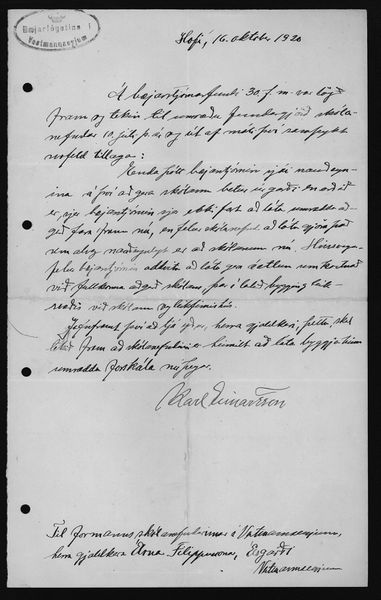 Bæjarfógetinn í
Vestmannaeyjum
Hofi, 16. oktober 1920
Á bæjarstjórnarfundi 30. f.m. var
fram og tekin til umræðu fundargjörð skóla-
nefndar 10. júlí þ. á. og út af máli því samþykt
svofeld tillaga:
Enda þótt bæjarstjórnin sjái nauðsyn-
ina á því að gera skólann betur úr garði en að
er, sjer bæjarstjórnin sjer ekki fært að láta umrædda að-
gerð fara fram nú, en felur skólanefnd að láta gjöra það
sem alveg nauðsynlegt er að skólanum nú. Hinsvegar
felur bæjarstjórnin að láta gera áætlun um kostnað
við fullkomna aðgerð skólans, þar í talið bygging
við skólann og leikfimishús.
Jafnframt því að tjá yður, herra gjaldkeri, þetta, skal
tekið fram að skólanefndinni er heimilt að láta byggja
umrædda forskála nú þegar.
Karl Einarsson
Til formanns skólanefndarinnar í Vestmannaeyjum,
herra gjaldkera Árna Filippussonar, Ásgarði
Vestmannaeyjum